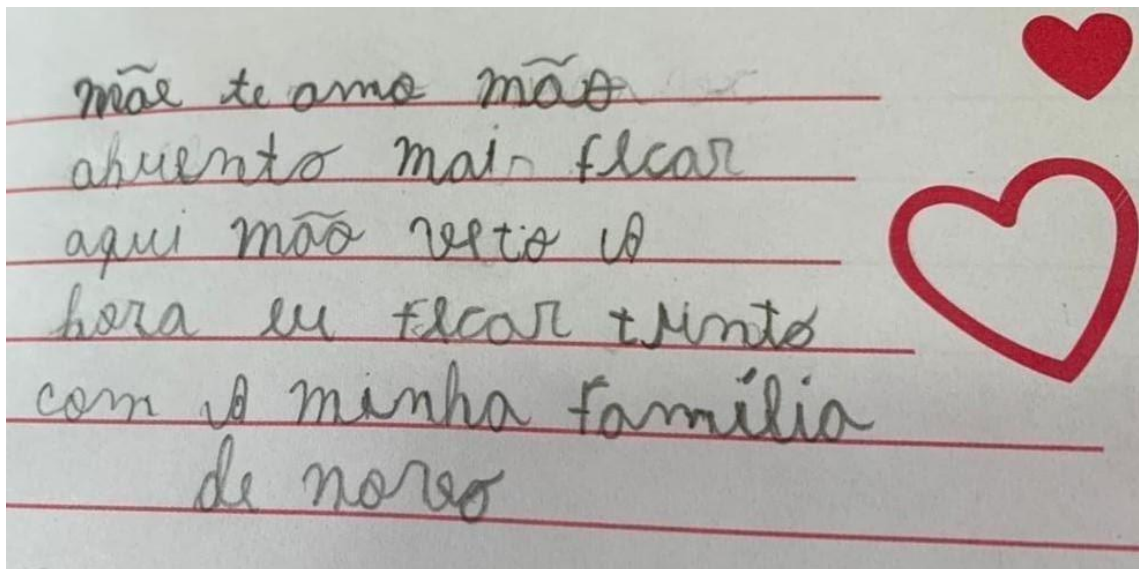 mãe te amo não
ahuento mais ficar
aqui não vejo a
hora eu ficar junto
com a minha família
de novo